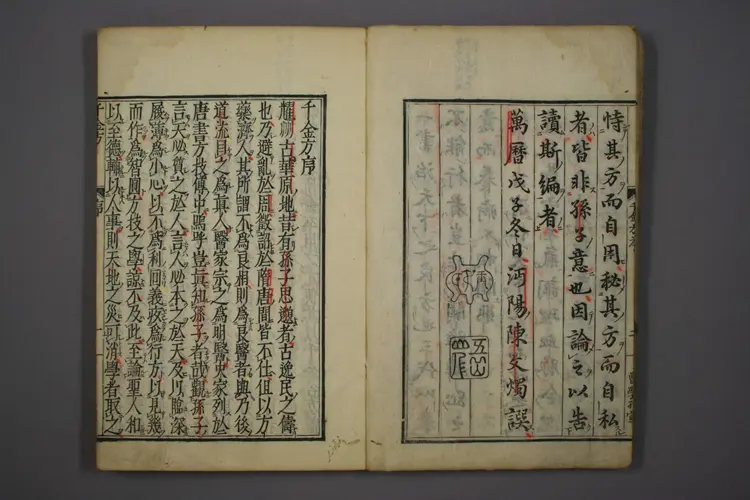 恃其方而自用秘其方而自私
者皆非孫子意也因論之以告
讀斯編者
萬曆戊子冬日沔陽陳文燭譔
千金方序
耀州古華原地昔有孫子思邈者古逸民之儔
也乃避亂於周徵詔於隋唐間皆不仕但以方
藥濟人其所謂不為良相則為良醫者與乃後
道流目之為真人醫家宗之為明醫史家列於
唐書方技傳中焉嗚呼豈真知孫子者哉觀孫子
言天必質之於人言人必本之於天及以臨深
展演為小心以不為利回義疚為行方以見幾
而作為智圓方技之學諒不及此至論聖人和
以至德輔以人事則天地之災可消學者取之
千金方
序